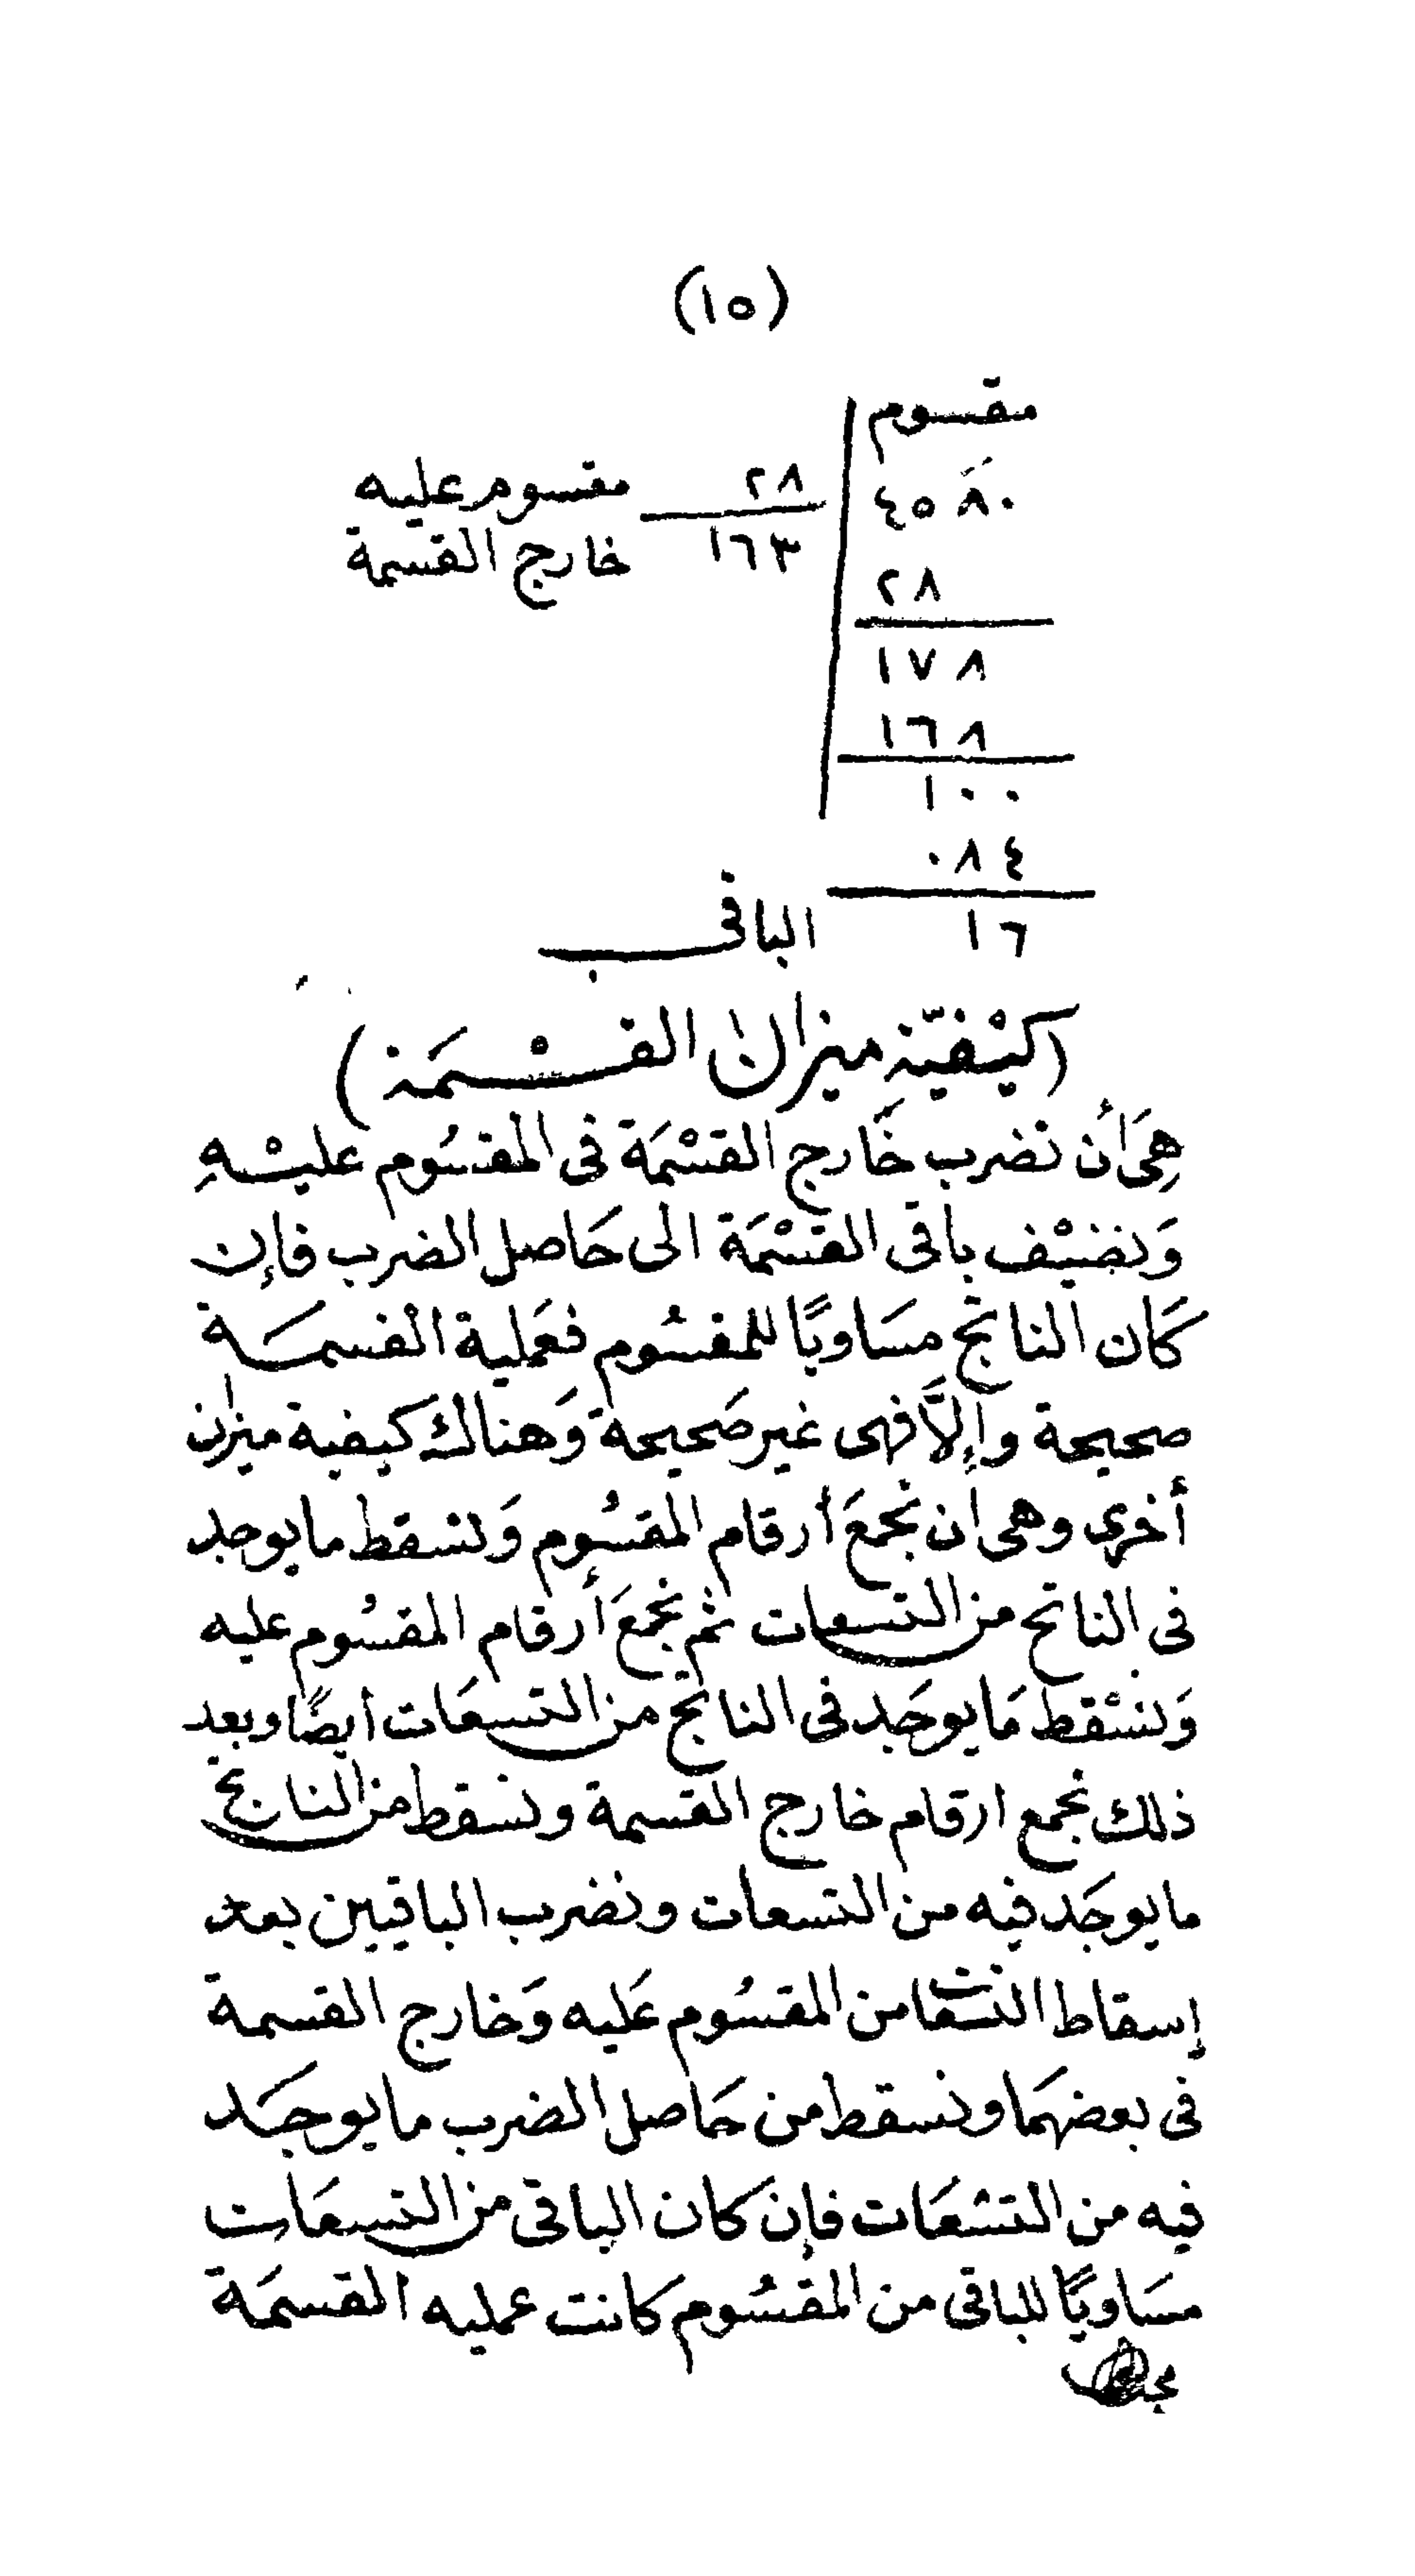 (١٥)
مقسوم
٤٥٨٠
٢٨ مقسوم عليه
١٦٣ خارج القسمة
٢٨
١٧٨
١٦٨
١٠٠
٠٨٤
١٦ الباقى
(كَيْفيّة ميزان القسْمَة)
هِىَ أَن نضرب خَارج القسْمَة فى المقسُوم عليْهِ
وَنضيْف باقى القسْمَة الى حَاصل الضرب فإن
كَان الناتج مسَاويًا للمقسُوم فعَملية القسمَة
صحيحة وإلَّا فهى غير صَحيحة وَهناك كيفية ميزان
أخرى وهى ان نجمعَ أرقام المقسُوم وَنسقط ما يوجد
فى الناتج من التسعات ثم نجمعَ أرقام المقسُوم عليه
وَنسْقط مَا يوجَد فى الناتج من التسعَات أيضًا وبعد
ذلك نجمع ارقام خارج القسمة ونسقط من الناتج
ما يوجَد فيه من التسعات ونضرب الباقيين بعد
إسقاط التسعات من المقسُوم عَليه وَخارج القسمة
فى بعضهمَا ونسقط من حَاصل الضرب ما يوجَد
فيه من التسْعَات فإن كان الباقى من التسعَات
مسَاويًا للباقى من المقسُوم كانت عمليه القسمَة